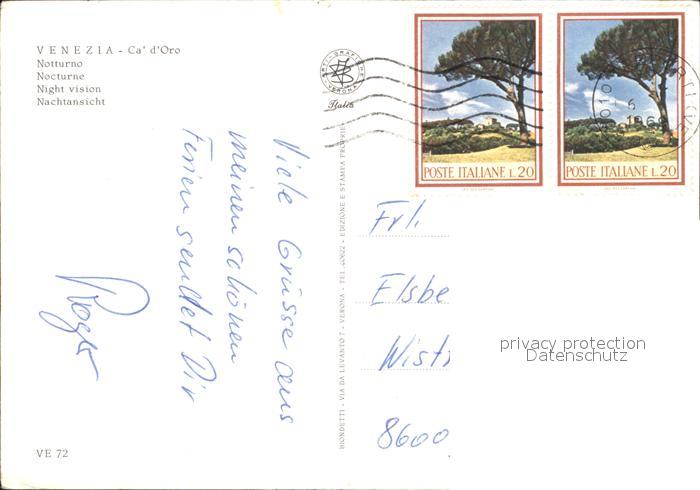 VENEZIA - Ca' d'Oro
Notturno
Nocturne
Night vision
Nachtansicht
VE 72
Viele Grüsse aus
meinen schönen
Ferien sendet Dir
Roger
ARTI GRAFICHE
VERONA
Italia
BIONDETTI - VIA DA LEVANTO 7 - VERONA - TEL. 50622 - EDIZIONE E STAMPA PROPRIE
POSTE ITALIANE L.20
POSTE ITALIANE L.20
Frl.
Elsbe
Wist
8600
privacy protection
Datenschutz